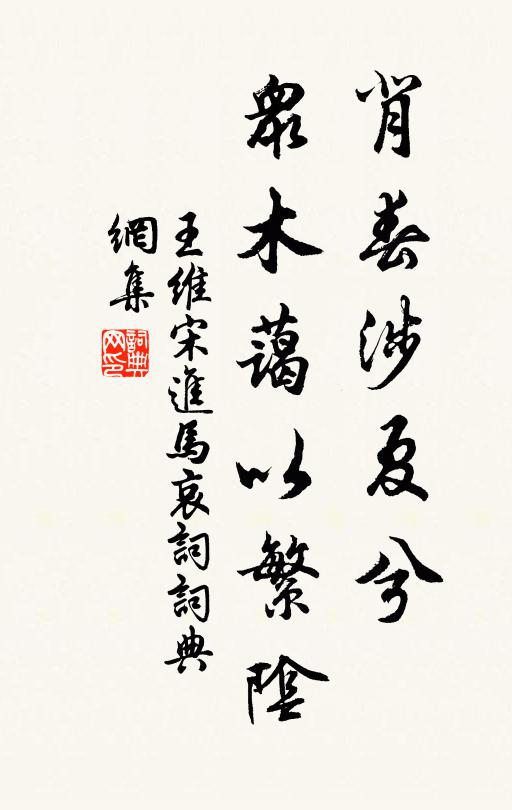 背春涉夏兮
眾木藹以繁陰
王維宋進馬哀詞詞典
網集
詞典
网印